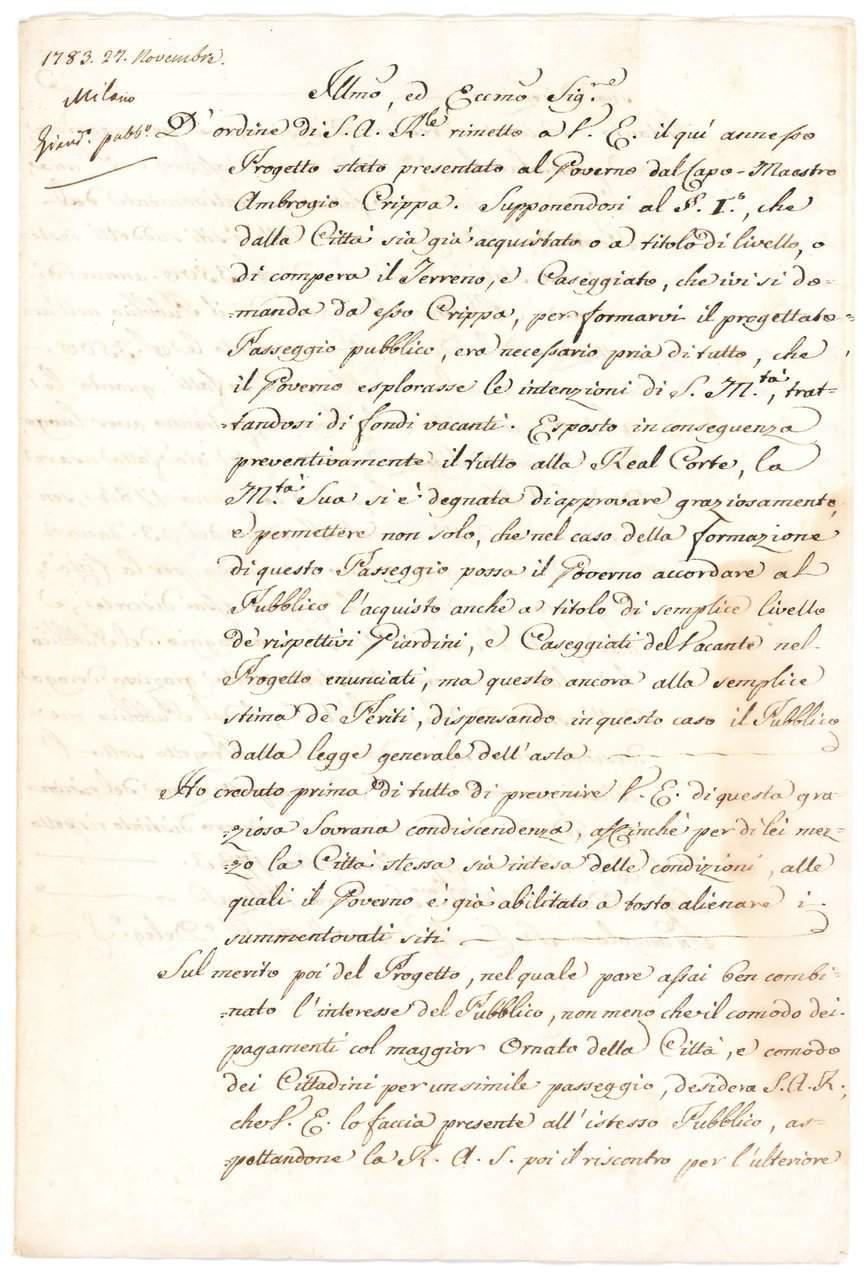 1783. 27. Novembre.
Milano
Giard.ⁱ pubb.ⁱ
Illmo, ed Eccmo Sig.ʳᵉ
D'ordine di S. A. R.ˡᵉ rimetto a V. E. il qui annesso
Progetto stato presentato al Governo dal Capo-Maestro
Ambrogio Crippa. Supponendosi al §. I.°, che
dalla Città sia già acquistato o a titolo di livello, o
di compera il Terreno, e Caseggiato, che ivi si do=
=manda da esso Crippa, per formarvi il progettato
Passeggio pubblico, era necessario pria di tutto, che
il Governo esplorasse le intenzioni di S. M.ᵗᵃ̀, trat=
=tandosi di fondi vacanti. Esposto in conseguenza
preventivamente il tutto alla Real Corte, la
M.ᵗᵃ̀ Sua si è degnata di approvare graziosamente,
e permettere non solo, che nel caso della formazione
di questo Passeggio possa il Governo accordare al
Pubblico l'acquisto anche a titolo di semplice livello
de' rispettivi Giardini, e Caseggiati del Vacante nel
Progetto enunciati, ma questo ancora alla semplice
stima de' Periti, dispensando in questo caso il Pubblico
dalla legge generale dell'asta
Ho creduto prima di tutto di prevenire V. E. di questa gra=
=ziosa Sovrana condiscendenza, affinchè per di lei mez=
=zo la Città stessa sia intesa delle condizioni, alle
quali il Governo è già abilitato a tosto alienare i
summentovati siti
Sul merito poi del Progetto, nel quale pare assai ben combi=
=nato l'interesse del Pubblico, non meno che il comodo dei
pagamenti col maggior Ornato della Città, e comodo
dei Cittadini per un simile passeggio, desidera S. A. R.,
che V. E. lo faccia presente all'istesso Pubblico, as=
=pettandone la R. A. S. poi il riscontro per l'ulteriore